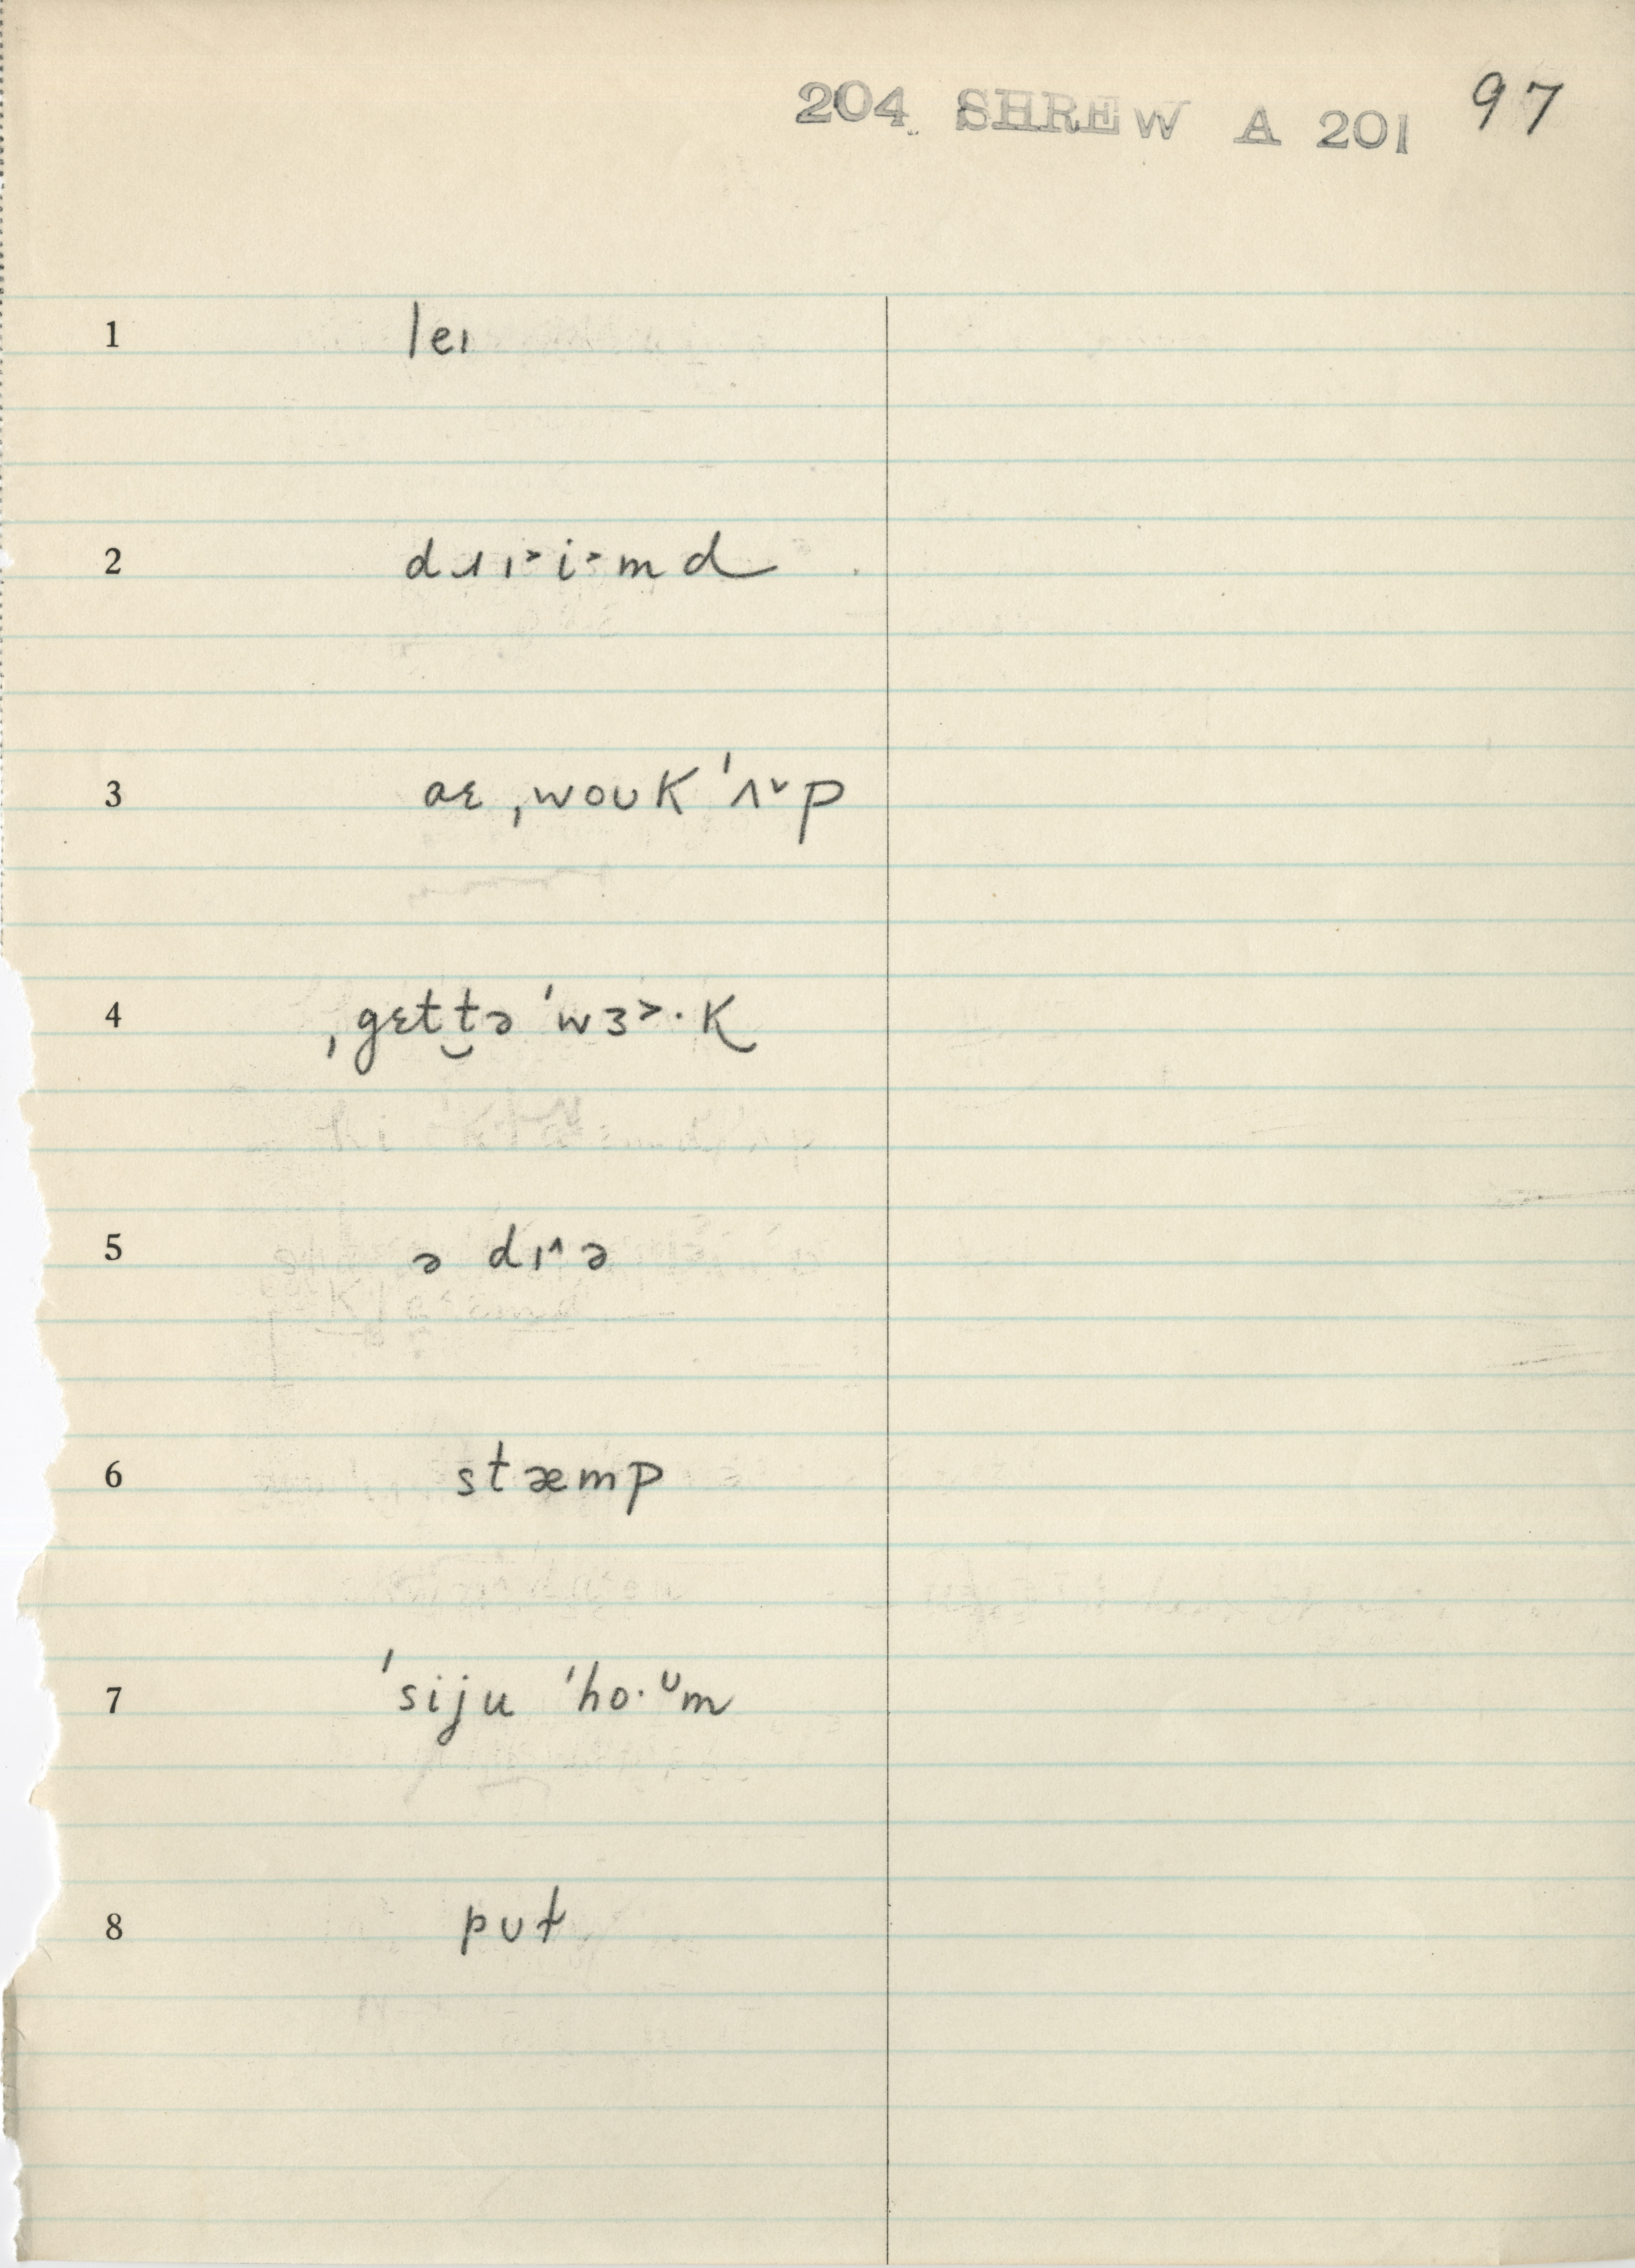 204 SHREW A 201 97
1 leɪ
2 dɹɪ˃i˃md
3 aɛ ˌwoʊk ˈʌ˅p
4 ˌgɛtt̮ə ˈwɜ˃·k
5 ə dɪ˄ə
6 stæmp
7 ˈsiju ˈho·ᶷm
8 pʊt